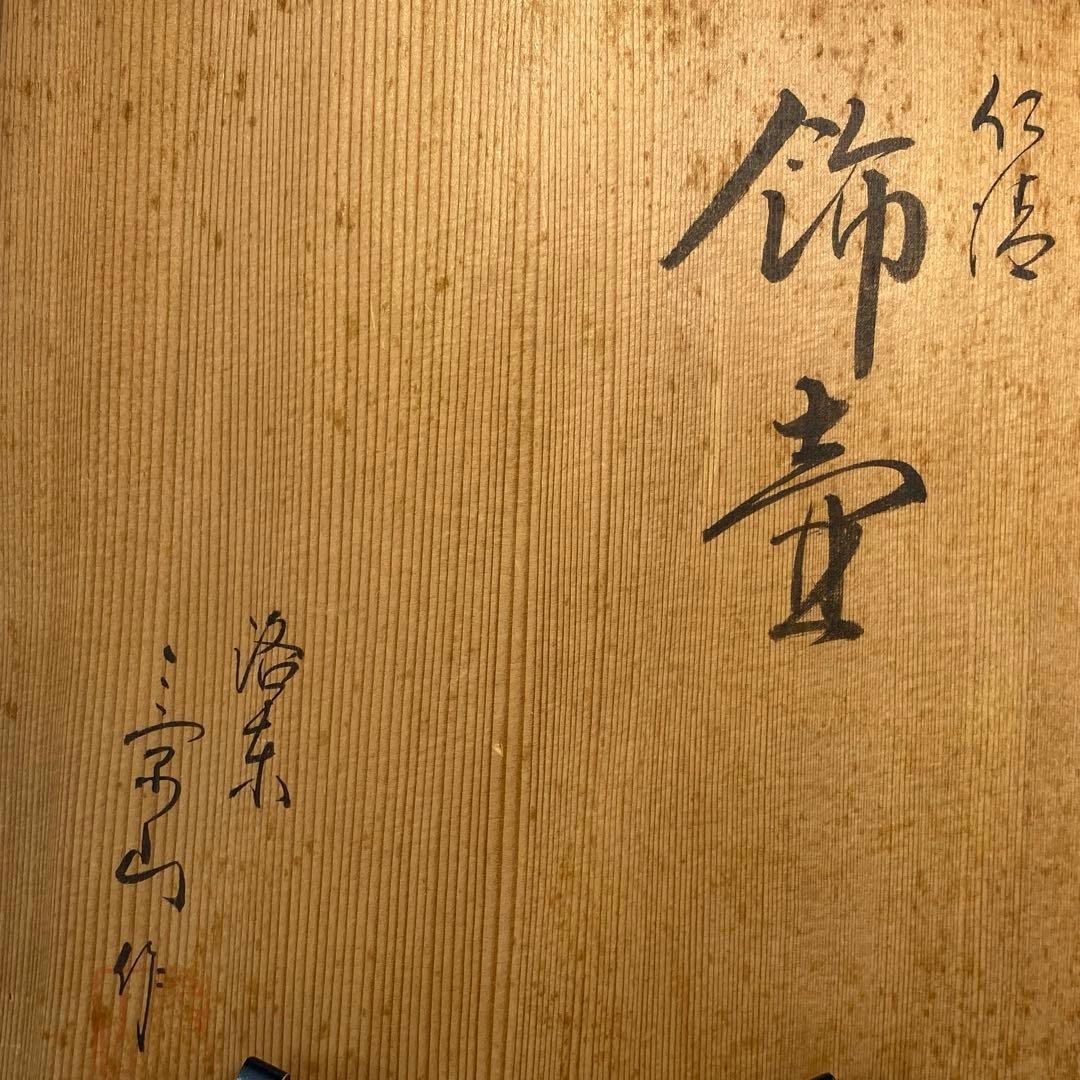 仁清
飾壺
洛東
宗山作